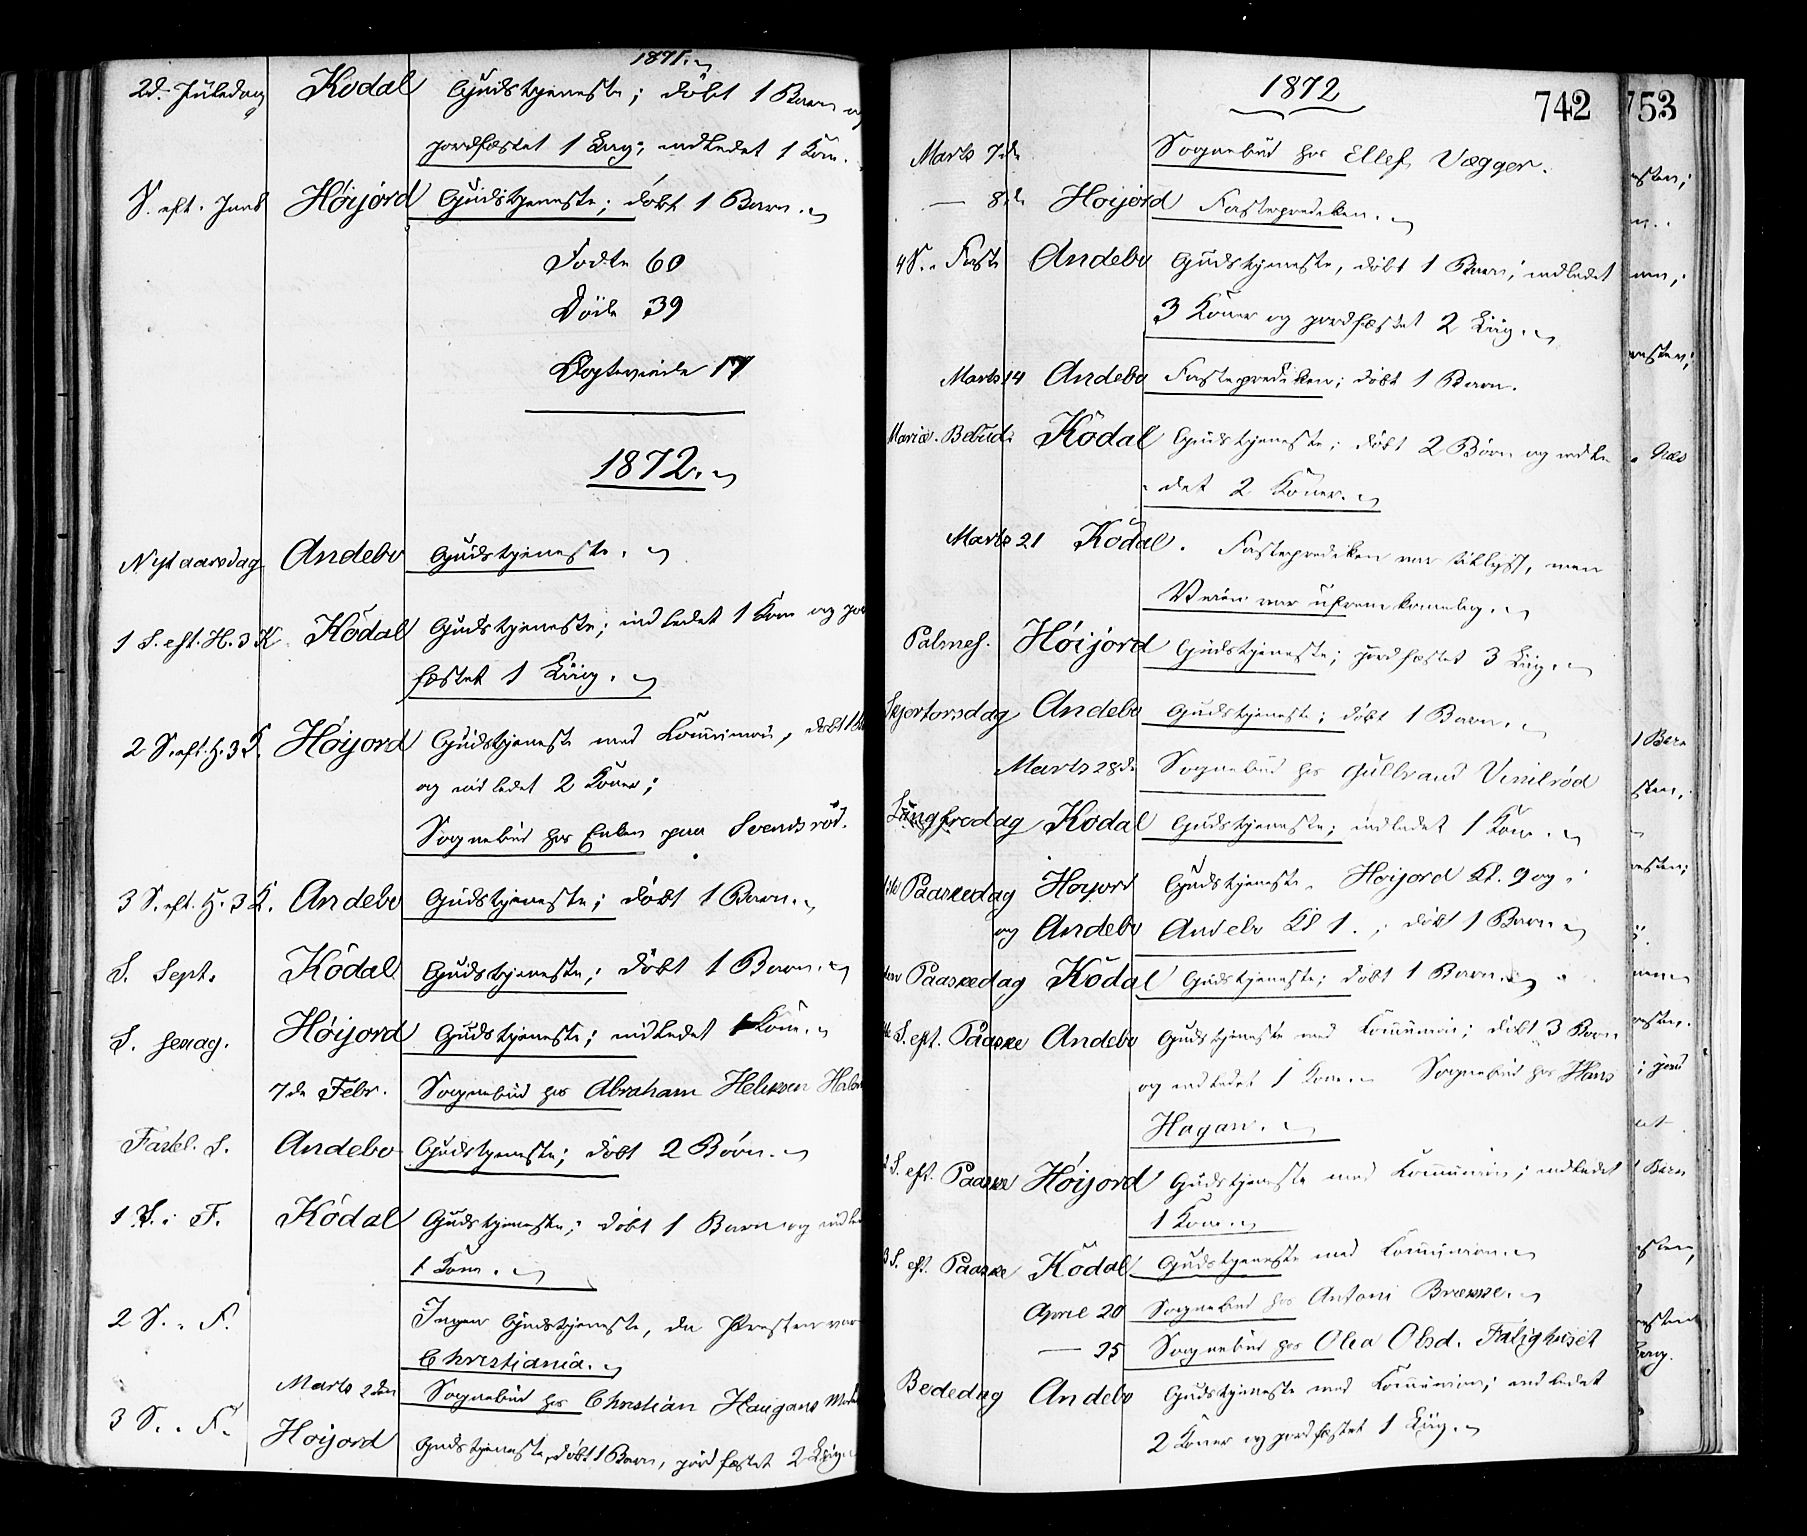 1871.
2d. Juledag Kodal Gudstjeneste; döbt 1 Barn og
jordfæstet 1 Liig; indledet 1 Kone.
S. eft. Juul Höijord Gudstjeneste; döbt 1 Barn.
Födte 60
Döde 39
Ægteviede 17
1872.
Nytaarsdag Andebo Gudstjeneste.
1 S. eft. H. 3 K. Kodal Gudstjeneste; indledet 1 Kone og jor
fæstet 1 Liig.
2 S. eft. H. 3 K. Höijord Gudstjeneste med Kommunion, döbt 1
og indledet 2 Koner;
Sognebud hos Enken paa Svendsröd.
3 S. eft. H. 3 K. Andebo Gudstjeneste; döbt 1 Barn.
S. Sept. Kodal Gudstjeneste; döbt 1 Barn.
S. Sexag. Höijord Gudstjeneste; indledet 1 Kone.
7de Febr. Sognebud hos Abraham
Fastel. S. Andebo Gudstjeneste; döbt 2 Börn.
1 S. i F. Kodal Gudstjeneste; döbt 1 Barn og indle
1 Kone.
2 S. " F. Ingen Gudstjeneste, da Presten var
Christiania.
Marts 2den Sognebud hos Christian Haugans
3 S. " F. Höijord Gudstjeneste, döbt 1 Barn, jordfæstet 2 Liig
1872
742
Marts 7de Sognebud hos Ellef Vægger.
— 8de Höijord Fasteprediken.
4 S. " Faste Andebo Gudstjeneste, döbt 1 Barn; indledet
3 Koner og jordfæstet 2 Liig.
Marts 14 Andebo Fasteprediken; döbt 1 Barn.
Mariæ. Bebud. Kodal Gudstjeneste; döbt 2 Börn og indle
det 2 Koner.
Marts 21 Kodal. Fasteprediken var tillyst, men
Veien var ufremkommelig.
Palmes. Höijord Gudstjeneste; jordfæstet 3 Liig.
Skjertorsdag Andebo Gudstjeneste; döbt 1 Barn.
Marts 28de Sognebud hos Gulbrand
Langfredag Kodal Gudstjeneste; indledet 1 Kone.
1ste Paaskedag Höijord Gudstjeneste. Höijord Kl. 9 og i
og Andebo Andebo Kl 1.; döbt 1 Barn
den Paaskedag Kodal Gudstjeneste; döbt 1 Barn.
S. eft. Paaske Andebo Gudstjeneste med Kommunion; döbt 3 Börn
og indledet 1 Kone. Sognebud hos Hans
Hagan.
S. eft. Paaske Höijord Gudstjeneste med Kommunion; indledet
1 Kone.
3 S. eft. Paaske Kodal Gudstjeneste med Kommunion.
April 20 Sognebud hos Antoni Brække.
— 25 Sognebud hos Olea Olsd. Fatighuset
Bededag Andebo Gudstjeneste med Kommunion; indledet
2 Koner og jordfæstet 1 Liig.
753
1 Barn